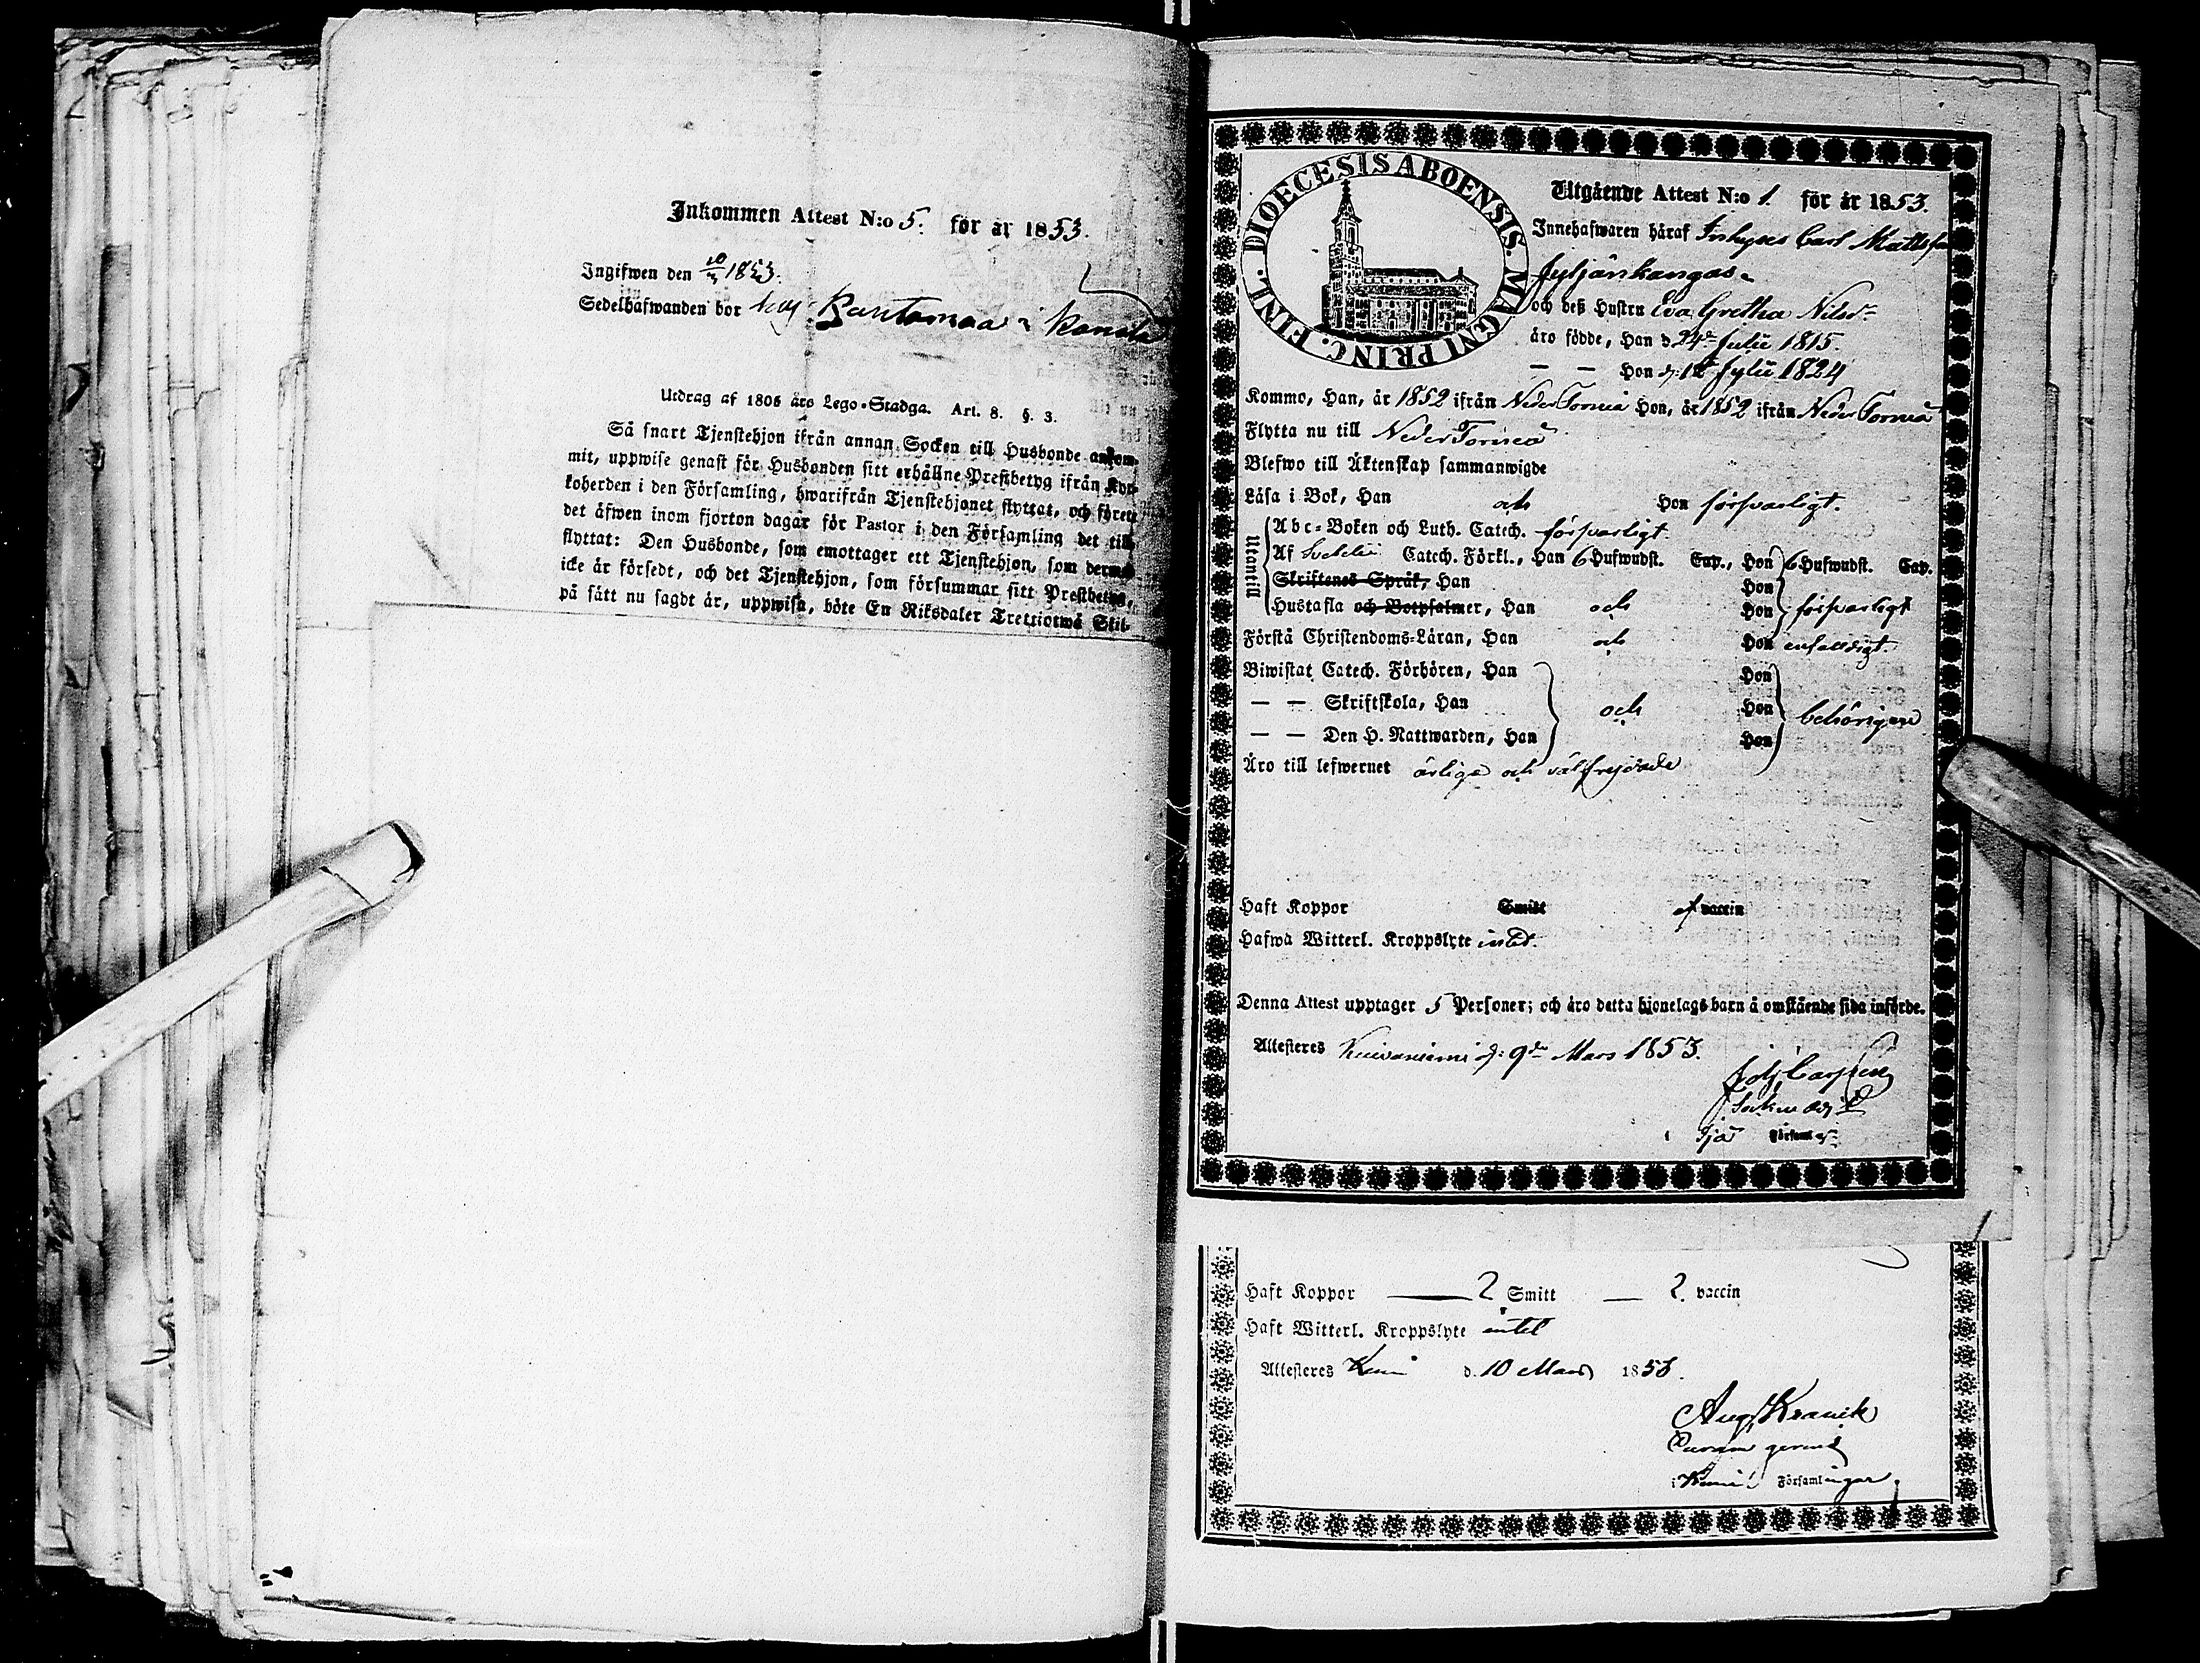 Inkommen Attest N:o 5. för år 1853.
Ingifwen den 10/3 1853.
Sedelhafwanden bor hos Rautamaa i
Utdrag af 1805 års Lego-Stadga. Art. 8. §. 3.
Så snart Tjenstehjon ifrån annan Socken till Husbonde ankom-
mit, uppwise genast för Husbonden sitt erhållne Prestbetyg ifrån Kyr-
koherden i den Församling, hwarifrån Tjenstehjonet flyttat, och förete
det äfwen inom fjorton dagar för Pastor i den Församling det till-
flyttat: Den Husbonde, som emottager ett Tjenstehjon, som dermed
icke är försedt, och det Tjenstehjon, som försummar sitt Prestbetyg,
på sätt nu sagdt är, uppwisa, böte En Riksdaler Trettiotwå Skil-
DIOECESIS ABOENSIS. MAGNI PRINC. FINL.
Utgående Attest N:o 1. för år 1853.
Innehafwaren häraf Inhyses Carl Matts son
Jyljänkangas
och deß Hustru Eva Gretha Nilsd
äro födde, Han d 24 Julii 1815.
— — Hon d: 12 Julii 1824
Kommo, Han, år 1852 ifrån Neder Torneå Hon, år 1852 ifrån Neder Torneå
Flytta nu till Neder Torneå
Blefwo till Äktenskap sammanwigde
Läsa i Bok, Han och Hon försvarligt.
Utantill
Abc-Boken och Luth. Catech. försvarligt
Af Svebilii Catech. Förkl., Han 6 Hufwudst. Cap., Hon 6 Hufwudst. Cap.
Skriftenes Språk, Han Hon
Hustafla och Botpsalmer, Han och Hon försvarligt
Förstå Christendoms-Läran, Han och Hon enfaldigt.
Biwistat Catech. Förhören, Han Hon
— — Skriftskola, Han och Hon behörigen
— — Den H. Nattwarden, Han Hon
Äro till lefwernet ärliga och välfrejdade
Haft Koppor Smitt af vaccin
Hafwa Witterl. Kroppslyte intet.
Denna Attest upptager 5 Personer; och äro detta hjonelags barn å omstående sida införde.
Attesteres Kuivaniemi d: 9de Mars 1853.
Joh. Carpén
i Församl
Haft Koppor — 2 Smitt — 2. vaccin
Haft Witterl. Kroppslyte intet
Attesteres Kemi d. 10 Mars 1853.
Aug. Kranck
i Kemi Församlingar